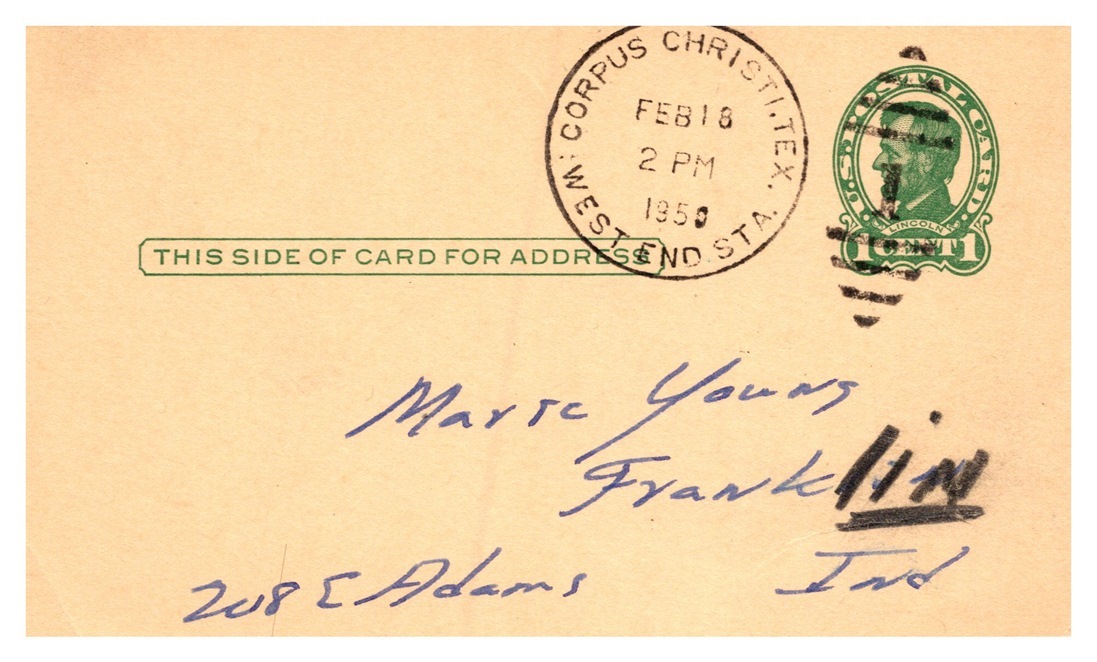 CORPUS CHRISTI, TEX.
WEST END STA.
FEB 18
2 PM
195
U.S. POSTAL CARD.
LINCOLN
1 CENT 1
THIS SIDE OF CARD FOR ADDRESS
Marie Young
Franklin
208 E Adams Ind